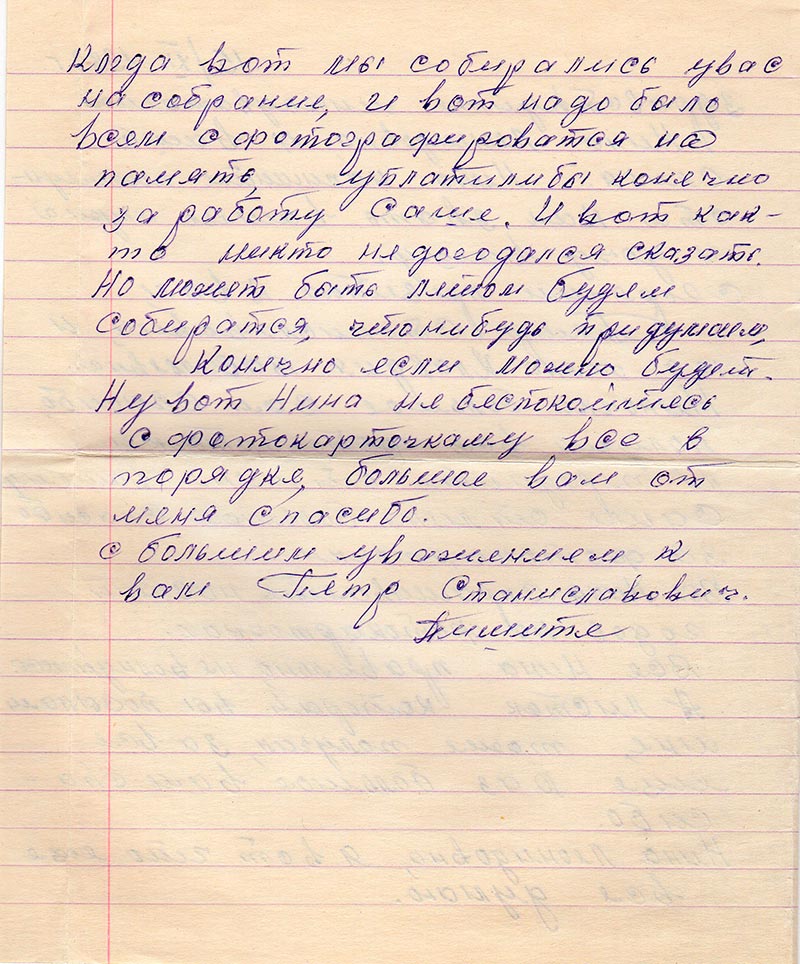 Когда вот мы собирались увас
на собрание, и вот надо было
всем сфотографироватся на
память, уплатилибы конечно
за работу Саше. И вот как-
то никто не догодался сказать.
Но может быть летом будем
собиратся, чтонибудь придумаем,
Конечно если можно будет.
Ну вот Нина не беспокойтесь
с фотокарточкаму все в
порядке, большое вам от
меня спасибо.
с большим уважением к
вам Петр Станиславович.
Пишите